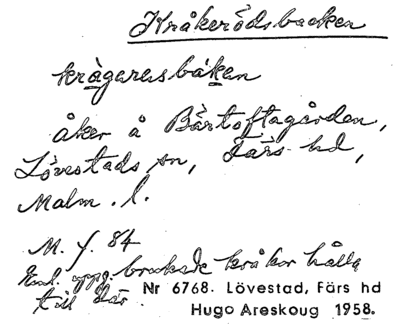 Kråkerödsbacken
krågerasbáken
åker å Bärtoftagården,
Lövestads sn, Färs hd,
Malm. l.
M. f. 84
Enl. uppg. brukade kråkor hålla
till där.
Nr 6768. Lövestad, Färs hd
Hugo Areskoug 1958.